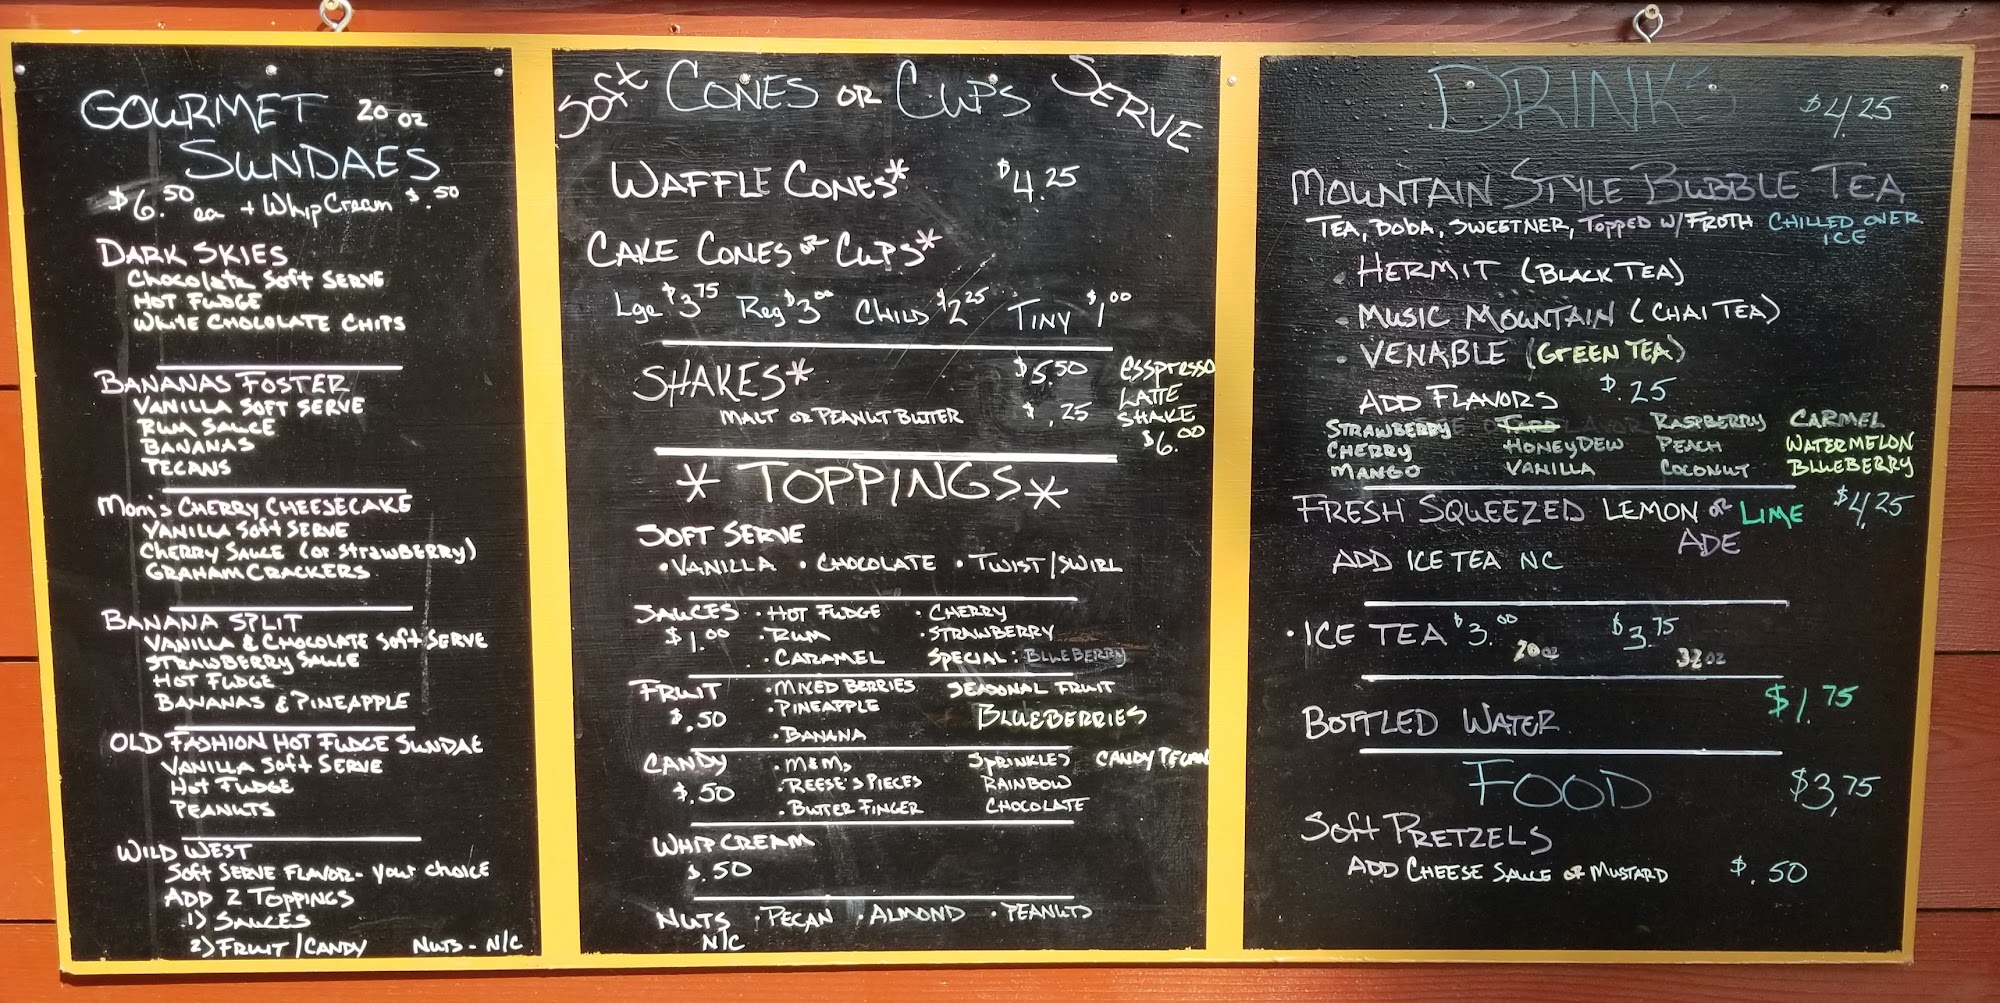 GOURMET 20 oz
SUNDAES
$6.50 ea + Whip Cream $.50
DARK SKIES
Chocolate Soft SERVE
HOT FUDGE
WHITE CHOCOLATE CHIPS
BANANAS FOSTER
VANILLA SOFT SERVE
RUM SAUCE
BANANAS
TECANS
Mom's CHERRY CHEESECAKE
VANILLA Soft SERVE
CHERRY SAUCE (or STRAWBERRY)
GRAHAM CRACKERS
BANANA SPLIT
VANILLA & CHOCOLATE Soft SERVE
STRAWBERRY SAUCE
HOT FUDGE
BANANAS & PINEAPPLE
OLD FASHION HOT FUDGE SUNDAE
VANILLA Soft SERVE
Hot FUDGE
PEANUTS
WILD WEST
Soft SERVE FLAVOR - your CHOICE
ADD 2 TOPPINGS
1) SAUCES
2) FRUIT/CANDY NUTS - N/C
Soft CONES OR CUPS SERVE
WAFFLE CONES* $4.25
CAKE CONES or CUPS*
Lge $3.75 Reg $3.00 CHILD $2.25 TINY $1.00
SHAKES* $5.50
MALT OR PEANUT BUTTER $.25
ESSPRESSO
LATTE
SHAKE
$6.00
* TOPPINGS *
SOFT SERVE
• VANILLA • CHOCOLATE • TWIST/SWIRL
SAUCES • HOT FUDGE • CHERRY
$1.00 • RUM • STRAWBERRY
• CARAMEL SPECIAL: BLUEBERRY
FRUIT • MIXED BERRIES SEASONAL FRUIT
$.50 • PINEAPPLE BLUEBERRIES
• BANANA
CANDY • M&Ms SPRINKLES CANDY PECAN
$.50 • REESE'S PIECES RAINBOW
• BUTTER FINGER CHOCOLATE
WHIP CREAM
$.50
NUTS • PECAN • ALMOND • PEANUTS
N/C
DRINKS $4.25
MOUNTAIN STYLE BUBBLE TEA
TEA, BOBA, SWEETNER, TOPPED W/ FROTH CHILLED OVER
ICE
• HERMIT (BLACK TEA)
• MUSIC MOUNTAIN (CHAI TEA)
• VENABLE (GREEN TEA)
ADD FLAVORS $.25
STRAWBERRY RASPBERRY CARMEL
CHERRY HONEYDEW PEACH WATERMELON
MANGO VANILLA COCONUT BLUEBERRY
FRESH SQUEEZED LEMON OR LIME $4.25
ADE
ADD ICE TEA NC
• ICE TEA $3.00 $3.75
20 oz 32 oz
BOTTLED WATER $1.75
FOOD $3.75
SOFT PRETZELS
ADD CHEESE SAUCE OR MUSTARD $.50